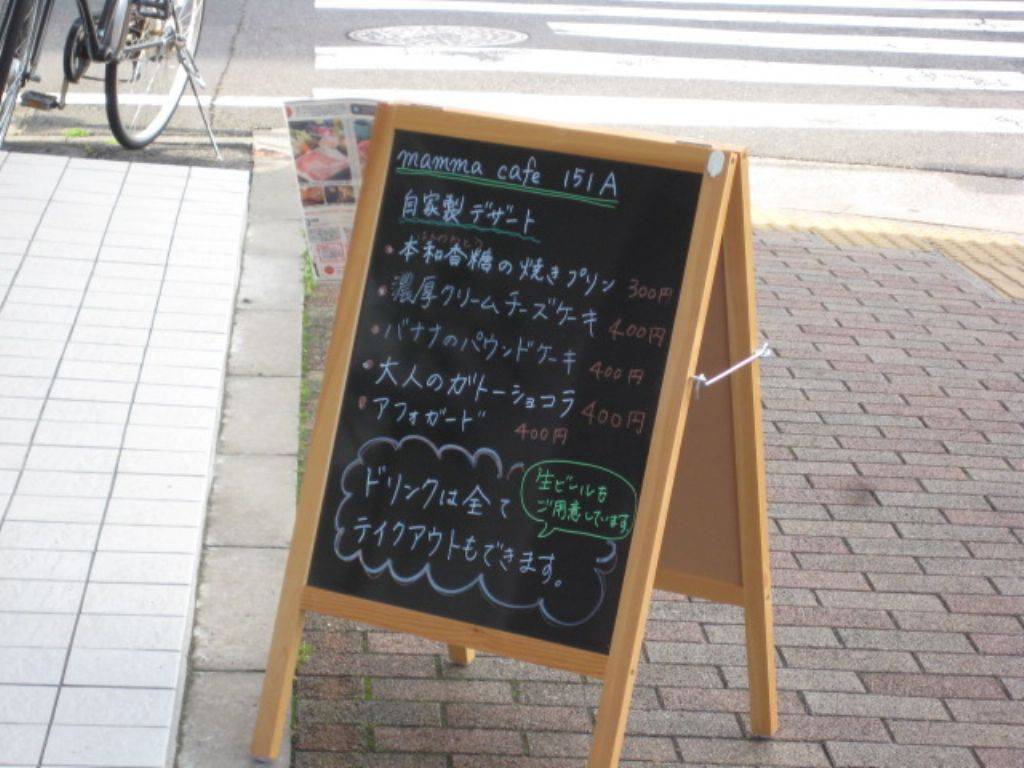 mamma cafe 151A
自家製デザート
・本和香糖の焼きプリン 300円
・濃厚クリームチーズケーキ 400円
・バナナのパウンドケーキ 400円
・大人のガトーショコラ 400円
・アフォガード 400円
ドリンクは全て
テイクアウトもできます。
生ビールも
ご用意しています